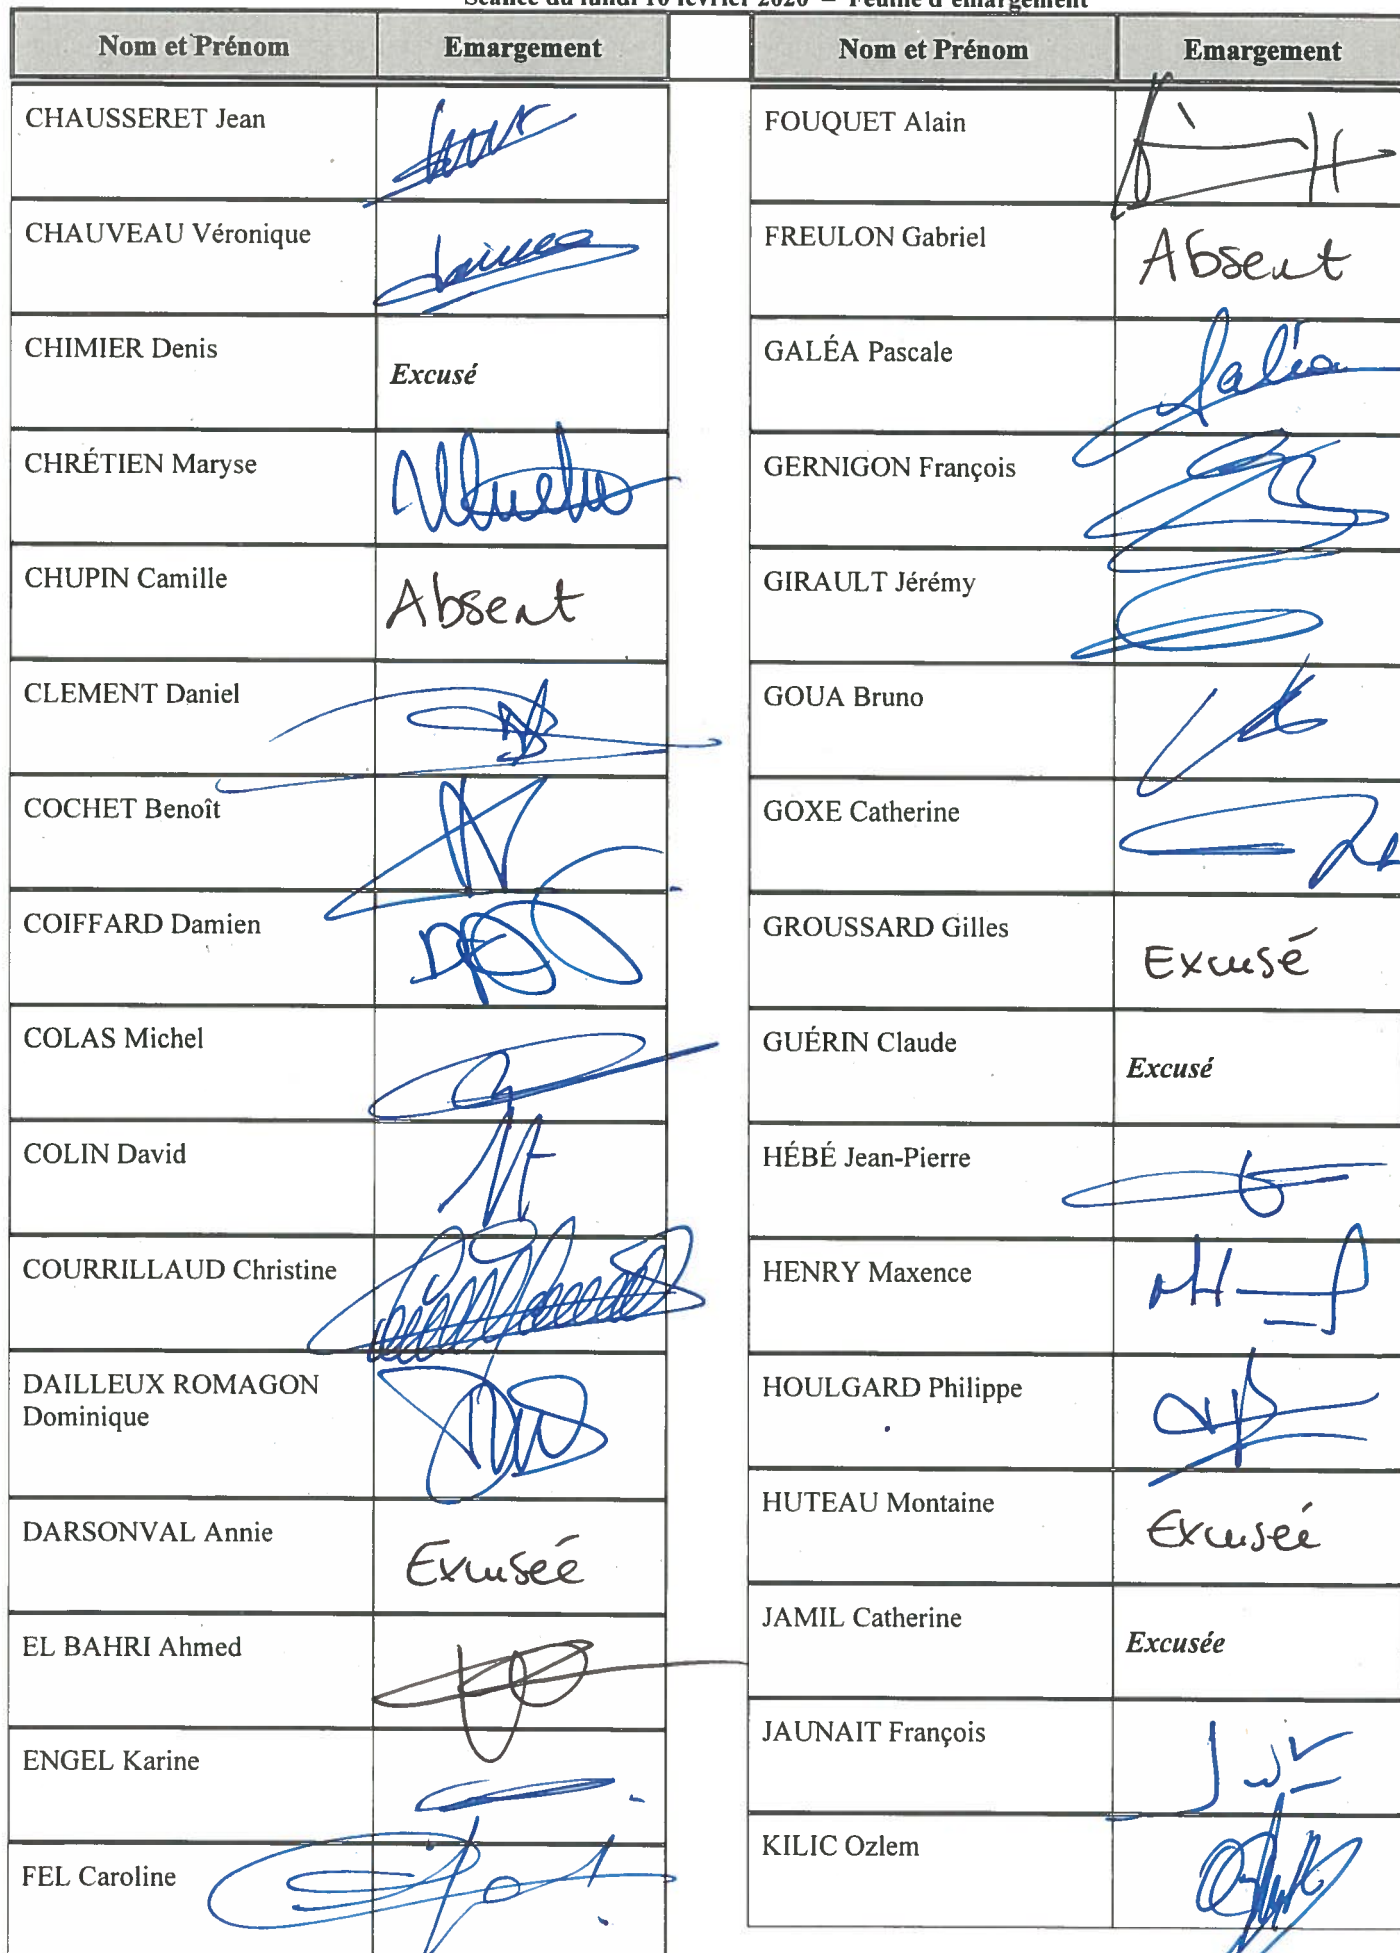 Séance du lundi 10 février 2020 – Feuille d'émargement
Nom et Prénom Emargement
CHAUSSERET Jean
CHAUVEAU Véronique
CHIMIER Denis
Excusé
CHRÉTIEN Maryse
CHUPIN Camille
Absent
CLEMENT Daniel
COCHET Benoît
COIFFARD Damien
COLAS Michel
COLIN David
COURRILLAUD Christine
DAILLEUX ROMAGON
Dominique
DARSONVAL Annie
Excusée
EL BAHRI Ahmed
ENGEL Karine
FEL Caroline
Nom et Prénom Emargement
FOUQUET Alain
FREULON Gabriel
Absent
GALÉA Pascale
Galéa
GERNIGON François
GIRAULT Jérémy
GOUA Bruno
GOXE Catherine
GROUSSARD Gilles
Excusé
GUÉRIN Claude
Excusé
HÉBÉ Jean-Pierre
HENRY Maxence
HOULGARD Philippe
HUTEAU Montaine
Excusée
JAMIL Catherine
Excusée
JAUNAIT François
KILIC Ozlem